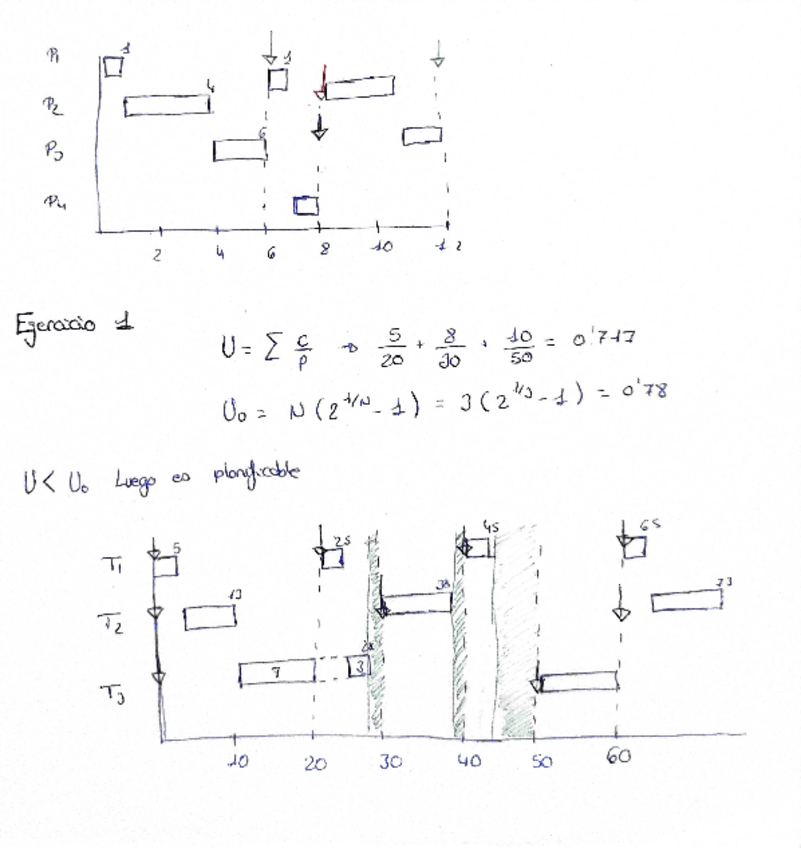 P1 1 1
P2 4
P3 6
P4
2 4 6 8 10 12
Ejercicio 1
U = Σ C/P → 5/20 + 8/30 + 10/50 = 0'717
U0 = N (2^1/N - 1) = 3 (2^1/3 - 1) = 0'78
U < U0 Luego es planificable
T1 5 25 45 65
T2 13 38 73
T3 7 3 28
10 20 30 40 50 60